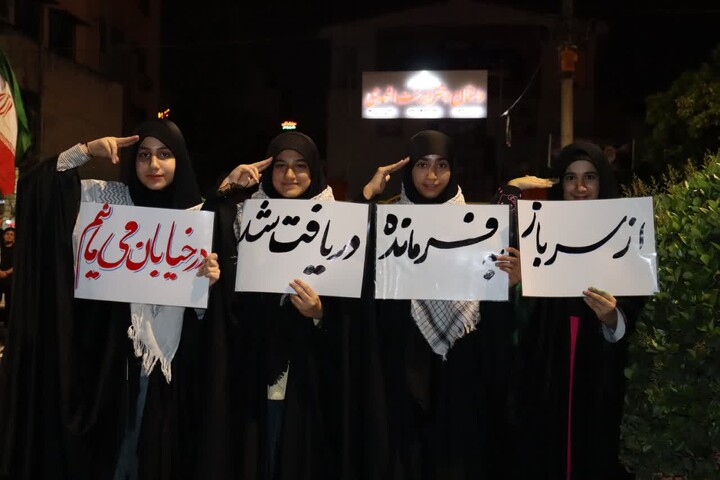 از سرباز
به فرمانده
دریافت شد
در خیابان می مانیم